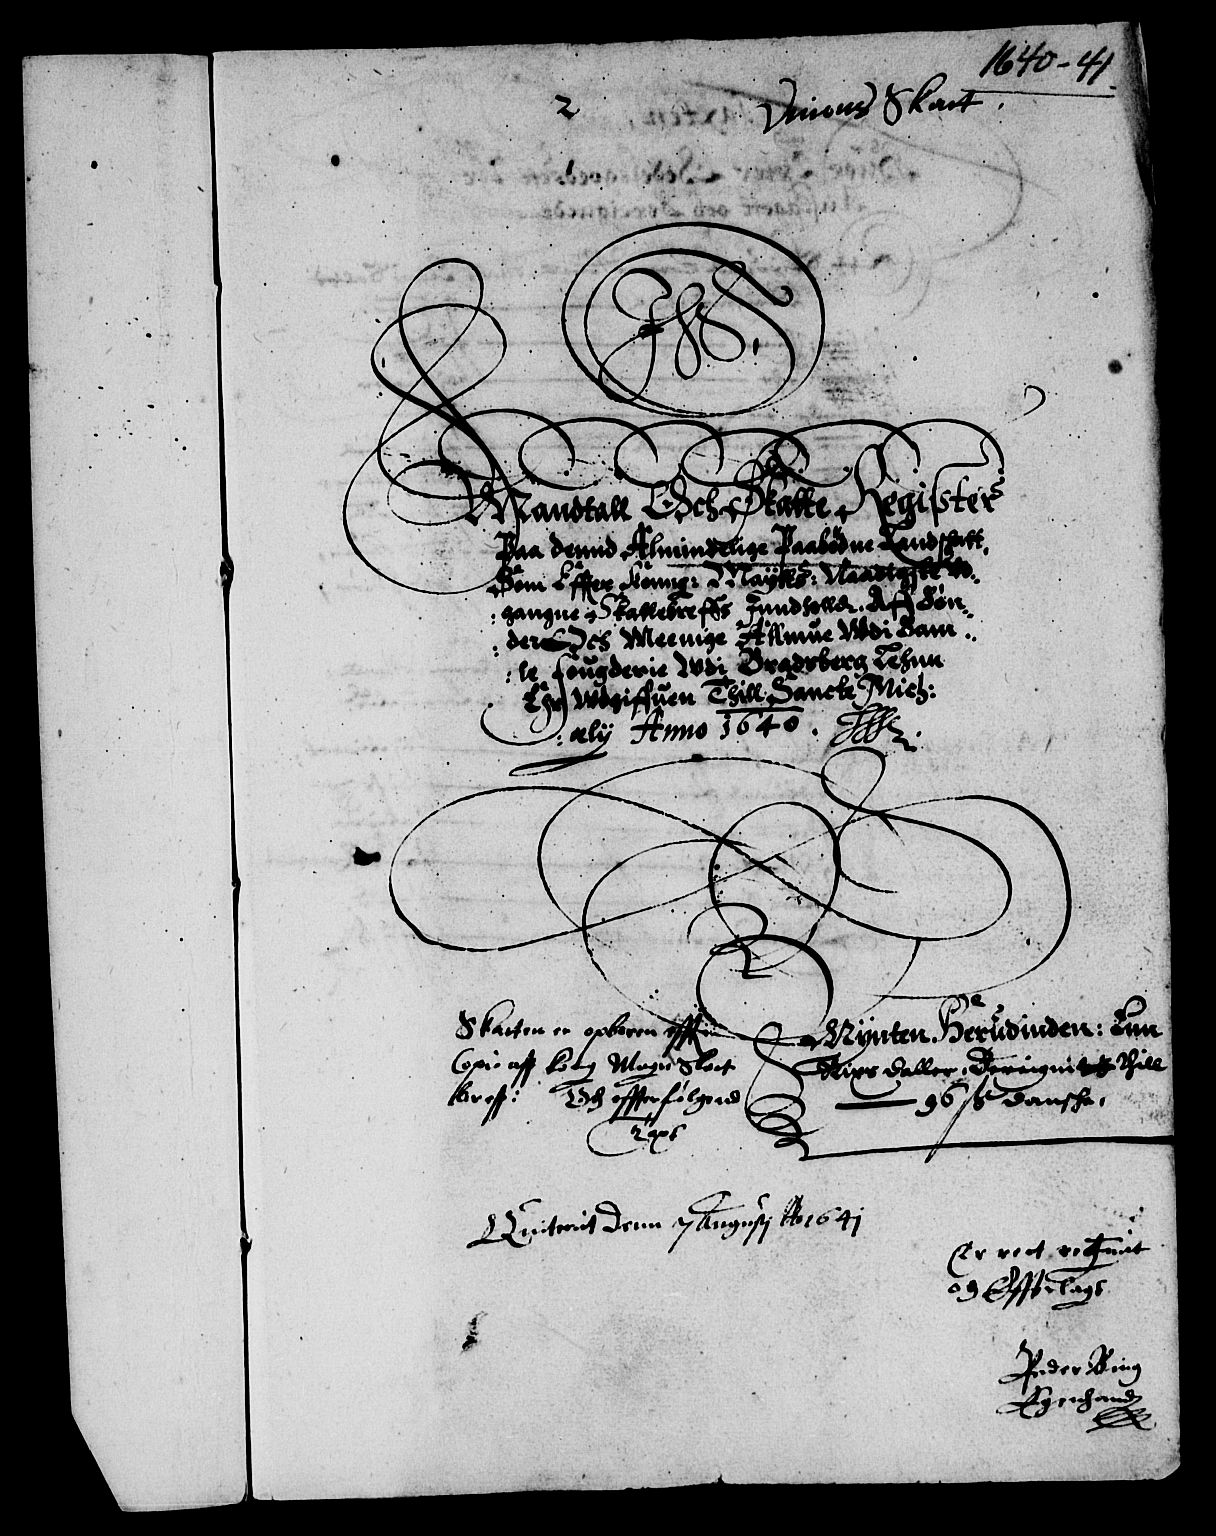 1640-41
2 Unions Skatt.
Mandtall Och Skatte Register
Paa dennd Almindelige Paabødne Landskatt,
Som Effter Kong: Maytts: Naadigste Ud-
gangne Skattebreffs Indhold. Aff Bøn-
der Och Meenige Allmue Udi Gam-
le fougderie Udi Bradsberg Lehnn
Ehr Udgiffuen Thill Sancte Mich:
aely Anno 1640.
Skatten er opboren effter
Copie aff Kong Mays Skat
breff: Och effterfølgend
Mynten Herudinden: Enn
Rixs daller, Bereignit Thill
96 ß danske,
Quiterit denn 7 Augusti Ao 1641
Er rect regnit
og Effterlags
Peder Bing
Egenhand